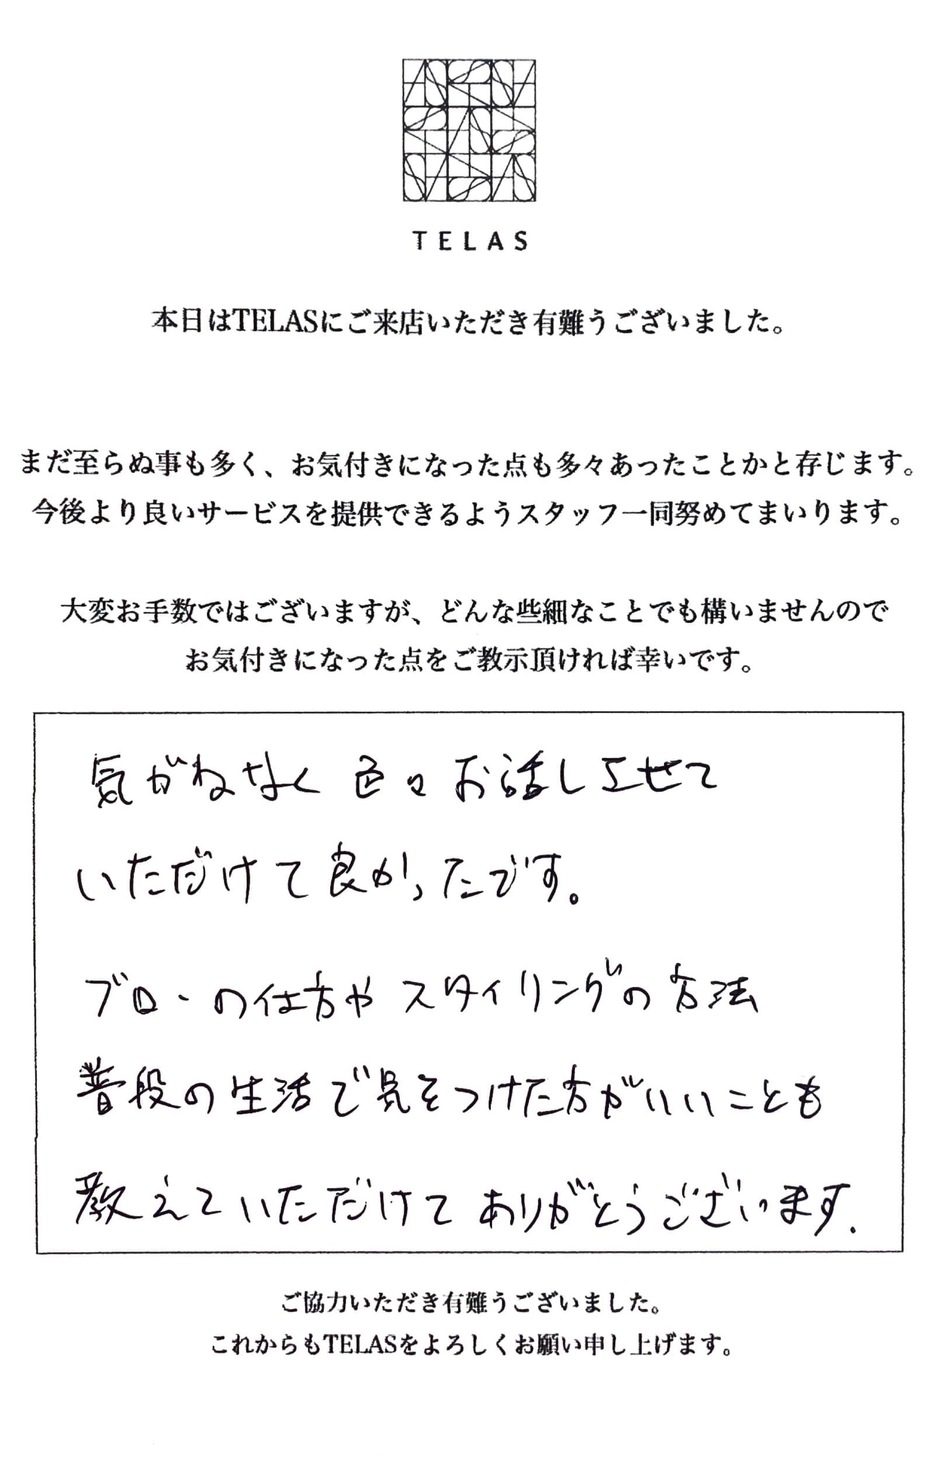 TELAS
本日はTELASにご来店いただき有難うございました。
まだ至らぬ事も多く、お気付きになった点も多々あったことかと存じます。
今後より良いサービスを提供できるようスタッフ一同努めてまいります。
大変お手数ではございますが、どんな些細なことでも構いませんので
お気付きになった点をご教示頂ければ幸いです。
気がねなく色々お話しさせて
いただけて良かったです。
ブローの仕方やスタイリングの方法
普段の生活で気をつけた方がいいことも
教えていただけてありがとうございます.
ご協力いただき有難うございました。
これからもTELASをよろしくお願い申し上げます。